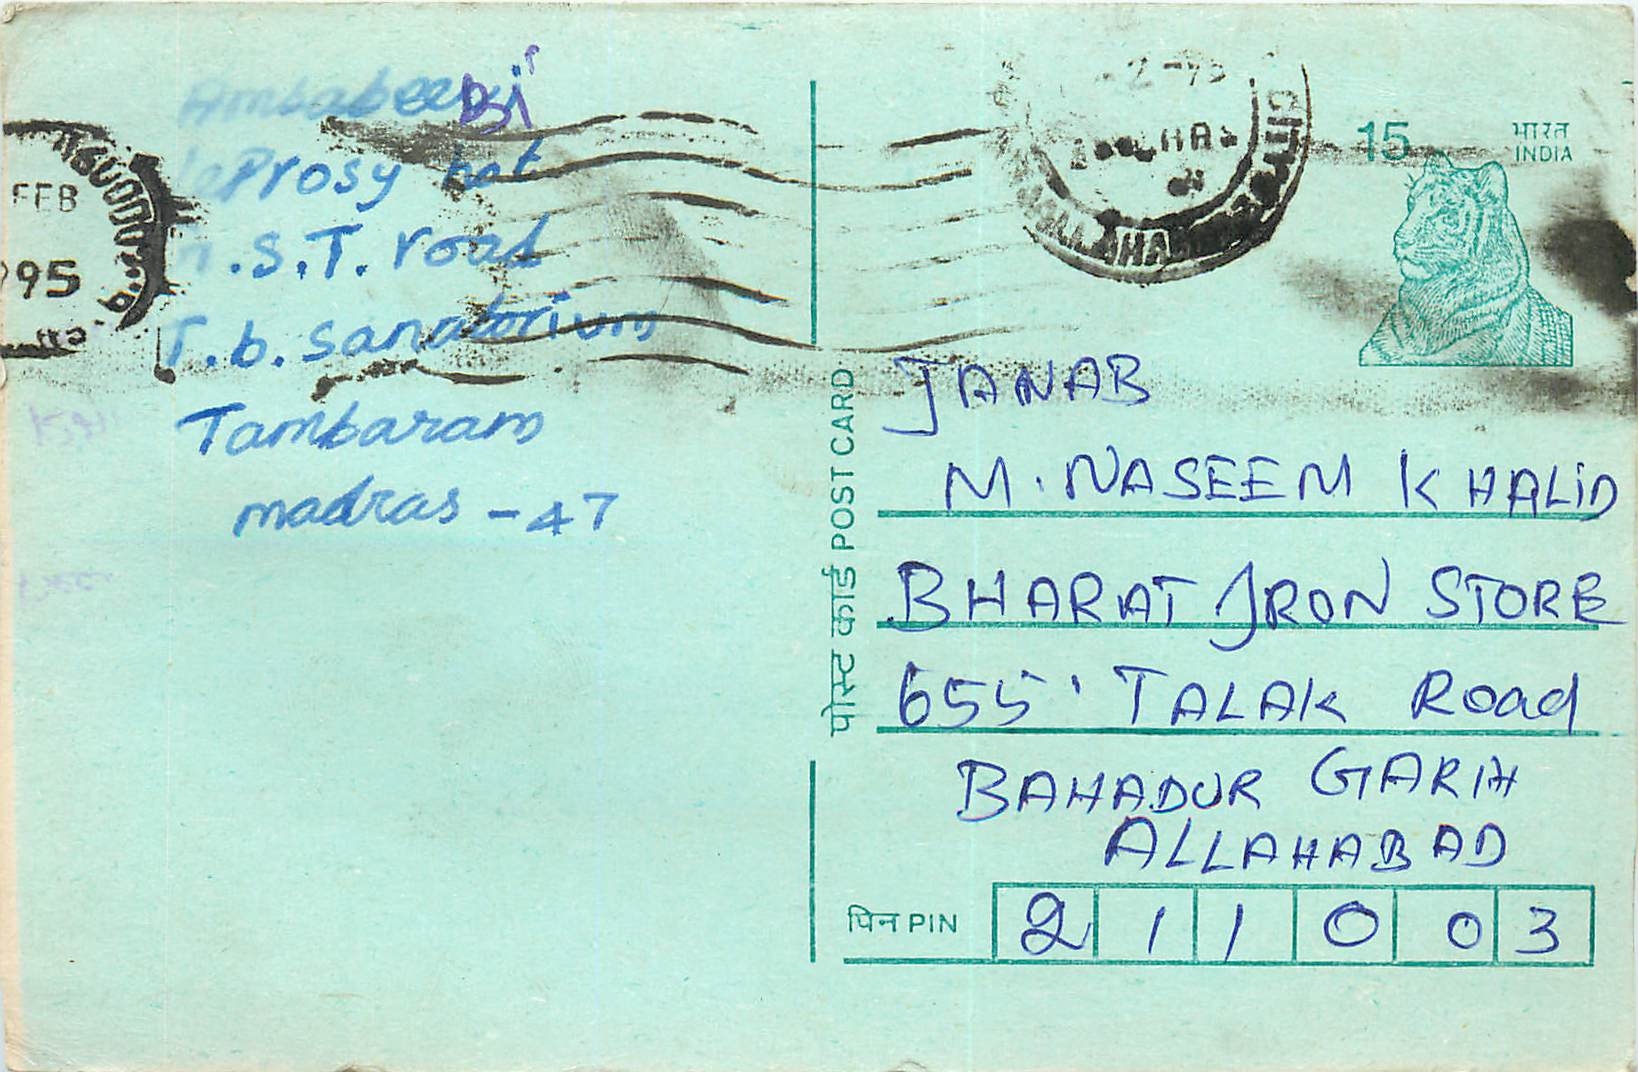 Bi
leprosy hot
.S.T. road
T.b. sanatorium
Tambaram
madras - 47
FEB
95
ALLAHABAD
15
भारत
INDIA
पोस्ट कार्ड POST CARD
JANAB
M. NASEEM KHALiD
BHARAT IRON STORE
655' TALAK Road
BAHADUR GARH
ALLAHABAD
पिन PIN 211003